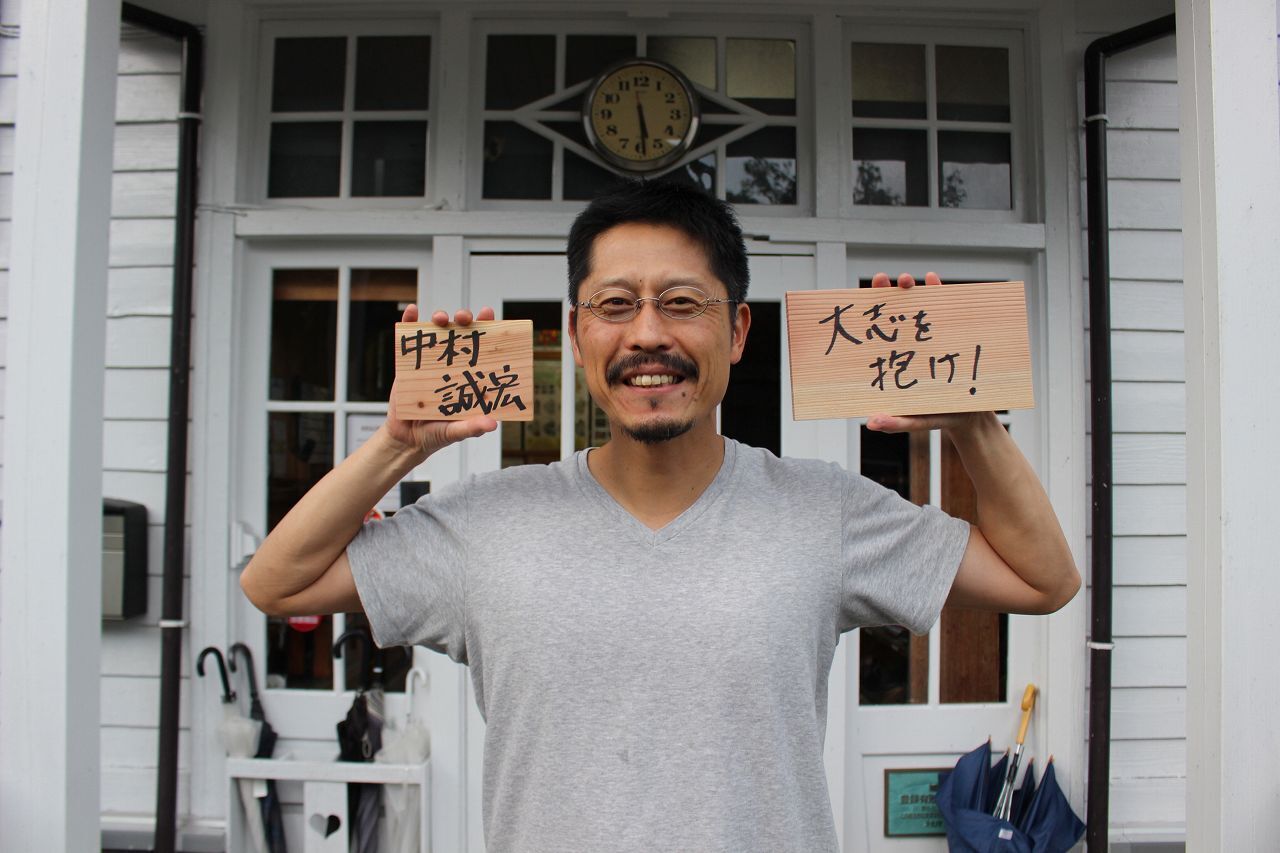 12
11
1
10
2
9
3
8
4
7
5
6
中村
誠宏
大志を
抱け!